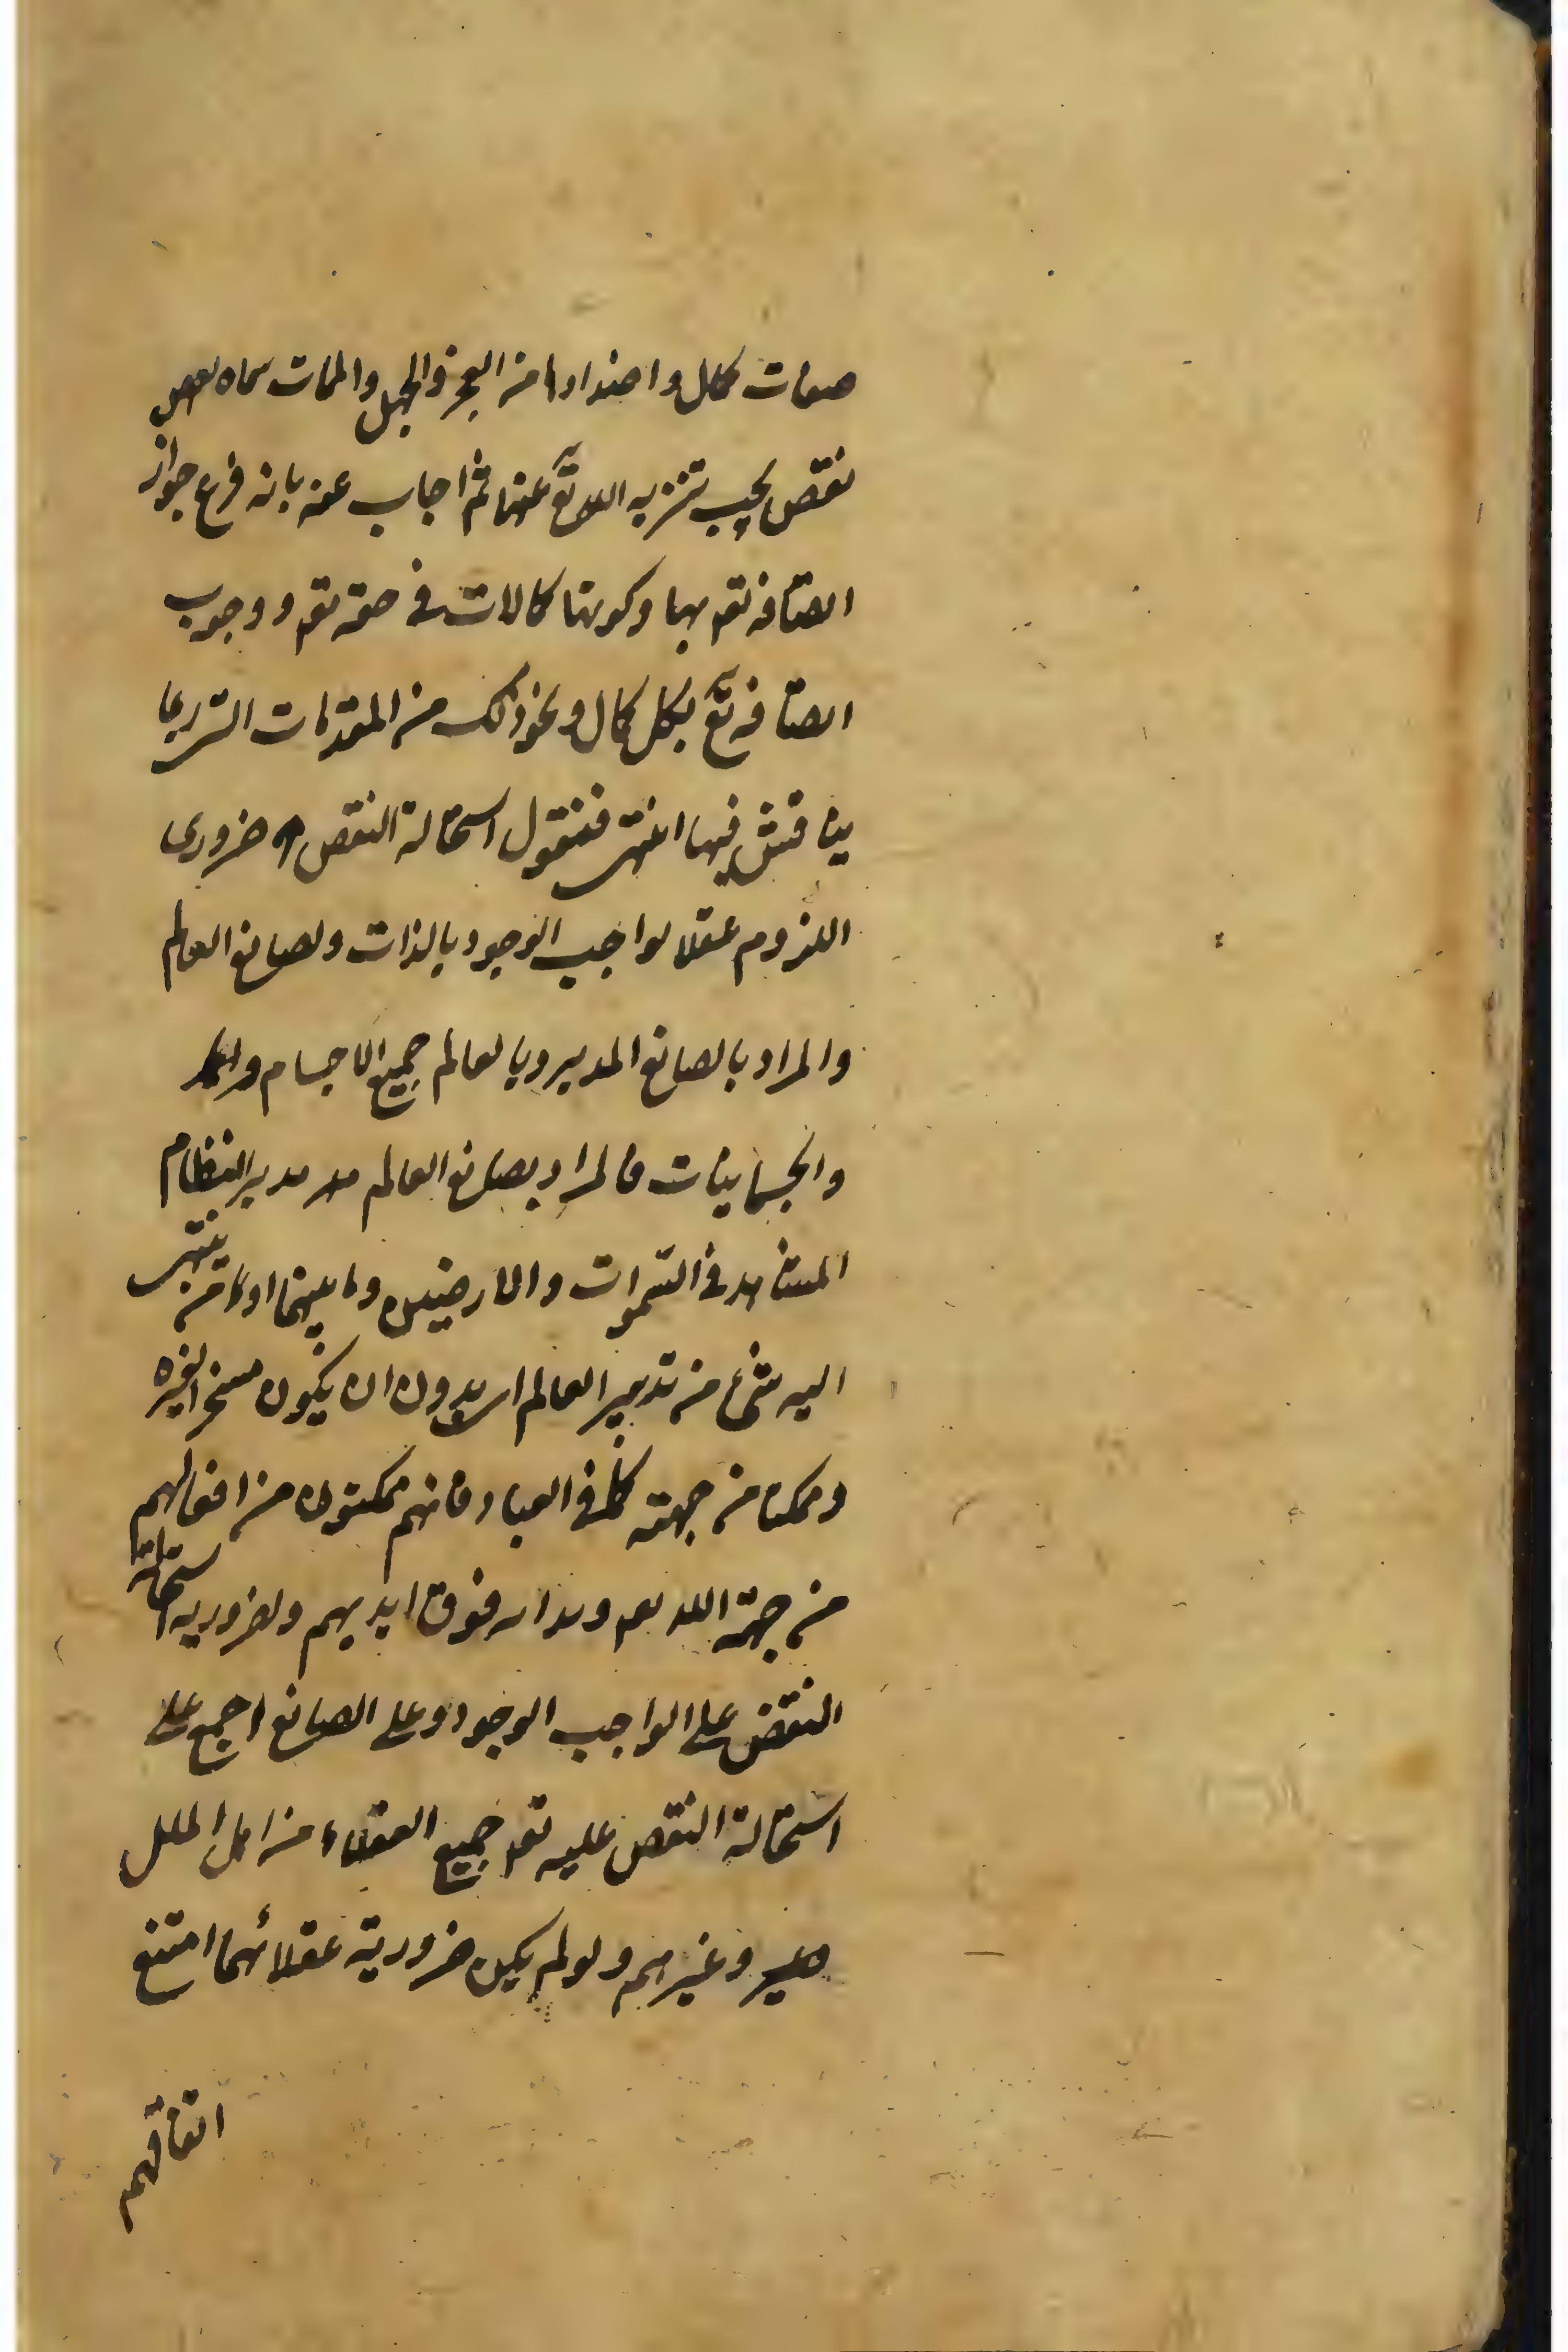 صفات كمال واضدادها من العجز والجهل والممات سماه بعض
نقص يجب تنزيه الله تع عنها ثم اجاب عنه بانه فرع جواز
اتصافه تعم بها وكونها كمالات في حقه تعم ووجوب
اتصافه تع بكل كمال ونحو ذلك من المقدمات التي ربما
يناقش فيها انتهى فنقول استحالة النقص ضروري
اللزوم عقلا لواجب الوجود بالذات ولصانع العالم
والمراد بالصانع المدبر وبالعالم جميع الاجسام
والجسمانيات فالمراد بصانع العالم مدبر النظام
المشاهد في السموات والارضين وما بينهما او ما من ينتهى
اليه شئ من تدبير العالم بدون ان يكون مسخرا لغيره
وممكنا من جهته كما في العباد فانهم ممكنون من افعالهم
من جهة الله تعم ويد الله فوق ايديهم ولضرورية استحالة
النقض على الواجب الوجود وعلى الصانع اجمع على
استحالة النقص عليه تعم جميع العقلاء من اهل الملل
وغيرهم ولو لم يكن ضرورية عقلائهما امتنع
اتفاقهم